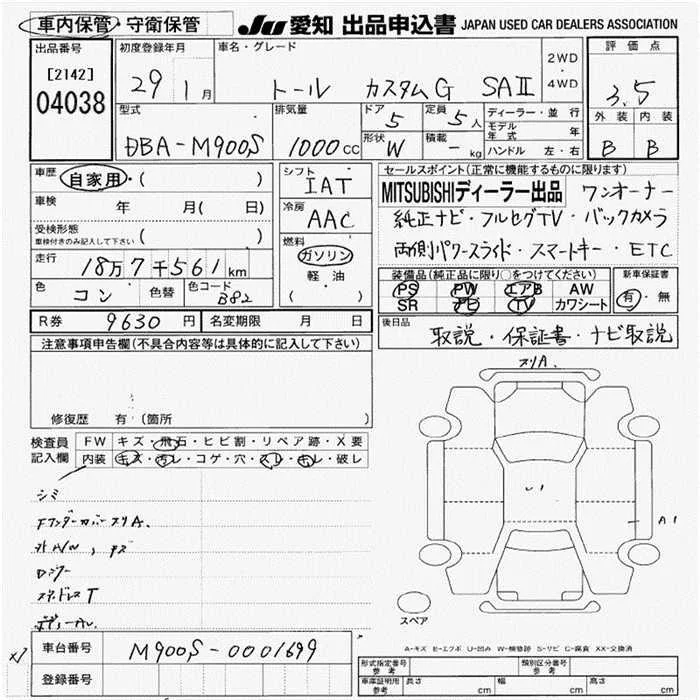 車内保管・守衛保管 JU 愛知 出品申込書 JAPAN USED CAR DEALERS ASSOCIATION
出品番号 [2142] 04038
初度登録年月 29 1月
車名・グレード トール カスタムG SAⅡ 2WD・4WD
評価点 3.5
外装 内装
B B
型式 DBA-M900S
排気量 1000cc
ドア 5
形状 W
定員 5人
積載 - kg
ディーラー・並行
モデル年式 年
ハンドル 左・右
車歴 自家用・( )
車検 年 月( 日)
受検形態 ( )
車検付きのみ記入して下さい
走行 18万7千561km
色 コン 色替 色コード B82
シフト IAT
冷房 AAC
燃料 ガソリン
軽・油
( )
セールスポイント(正常に機能するものに限ります)
MITSUBISHIディーラー出品 ワンオーナー
純正ナビ・フルセグTV・バックカメラ
両側パワースライド・スマートキー・ETC
装備品(純正品に限り○をつけてください) 新車保証書
PS PW エアB AW
SR ナビ TV カワシート
有・無
R券 9630円 名変期限 月 日
後日品 取説・保証書・ナビ取説
注意事項申告欄(不具合内容等は具体的に記入して下さい)
修復歴 有(箇所
検査員記入欄
FW キズ・飛石・ヒビ割・リペア跡・X要
内装 キズ・汚レ・コゲ・穴・スレ・キレ・破レ
シミ
スリA.
A1
スペア
車台番号 M900S-0001699
登録番号
A-キズ E-エクボ U-凹み W-補修跡 S-サビ C-腐食 XX-交換済
形式指定番号 参考 類別区分番号 参考
車庫証明用 参考 長さ cm 幅 cm 高さ cm